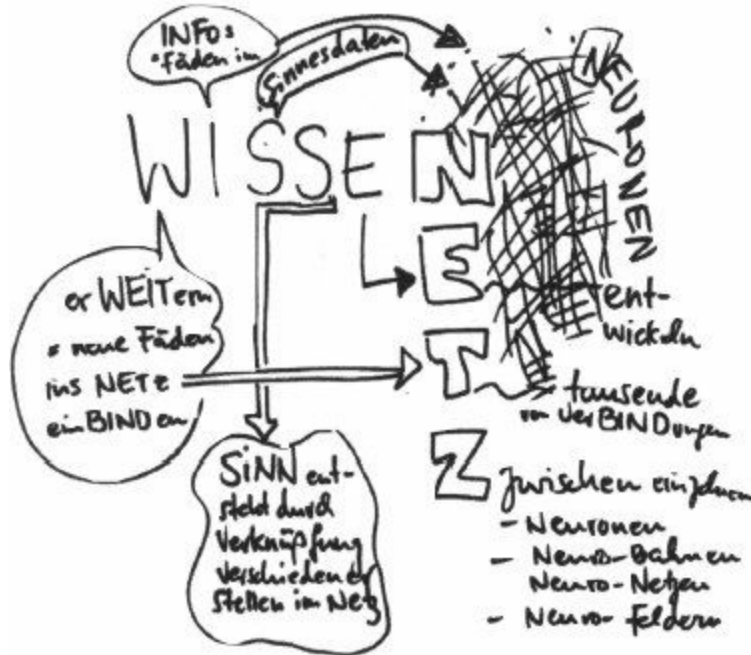 INFOs
= Fäden im
Sinnesdaten
WISSEN
NEURONEN
N
E
T
Z
erWEITern
= neue Fäden
ins NETz
einBINDen
ent-
wickeln
tausende
von VerBINDungen
zwischen einzelnen
- Neuronen
- Neuro-Bahnen
Neuro-Netzen
- Neuro-Feldern
SiNN ent-
steht durch
Verknüpfung
verschiedener
Stellen im Netz